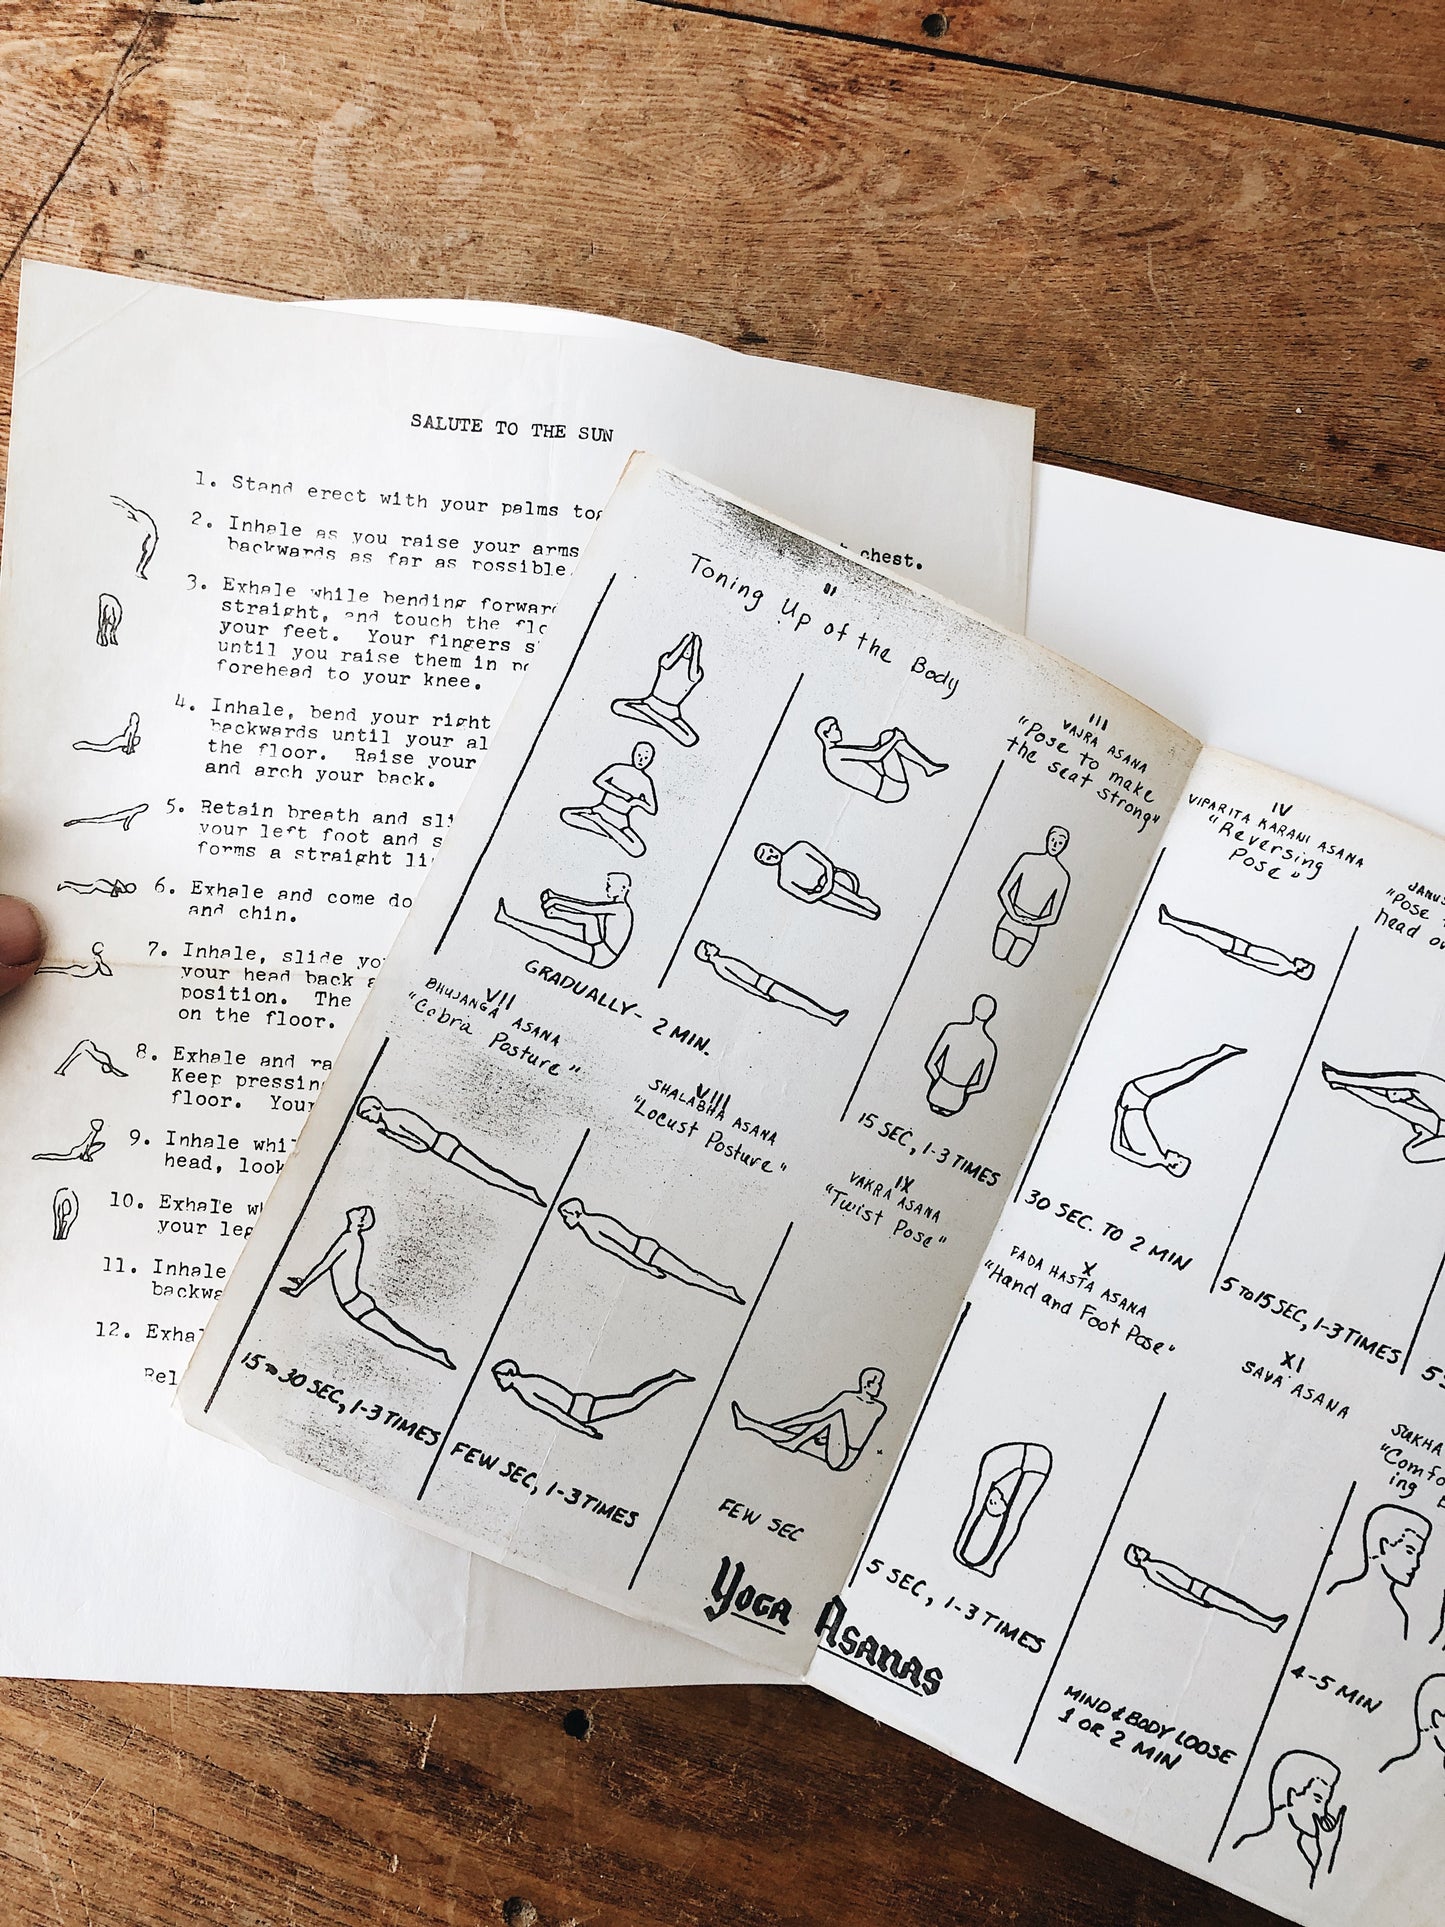 SALUTE TO THE SUN
1. Stand erect with your palms
chest.
2. Inhale as you raise your arms
backwards as far as possible.
3. Exhale while bending forward
straight, and touch the
your feet. Your fingers
until you raise them in
forehead to your knee.
4. Inhale, bend your right
backwards until your
the floor. Raise your
and arch your back.
5. Retain breath and
your left foot and
forms a straight
6. Exhale and come
and chin.
7. Inhale, slide
your head back
position. The
on the floor.
8. Exhale and
Keep
floor.
9. Inhale
head,
10. Exhale
your
11. Inhale
12.
II
Toning Up of the Body
GRADUALLY - 2 MIN.
III
VAJRA ASANA
"Pose to make
the seat strong"
15 SEC, 1-3 TIMES
IV
VIPARITA KARANI ASANA
"Reversing
Pose"
30 SEC. TO 2 MIN
"Pose
head
5 TO 15 SEC, 1-3 TIMES
VII
BHUJANGA ASANA
"Cobra Posture"
15 TO 30 SEC, 1-3 TIMES
VIII
SHALABHA ASANA
"Locust Posture"
FEW SEC, 1-3 TIMES
IX
VAKRA ASANA
"Twist Pose"
FEW SEC
X
PADA HASTA ASANA
"Hand and Foot Pose"
5 SEC, 1-3 TIMES
XI
SAVA ASANA
MIND & BODY LOOSE
1 OR 2 MIN
SUKHA
4-5 MIN
YOGA ASANAS